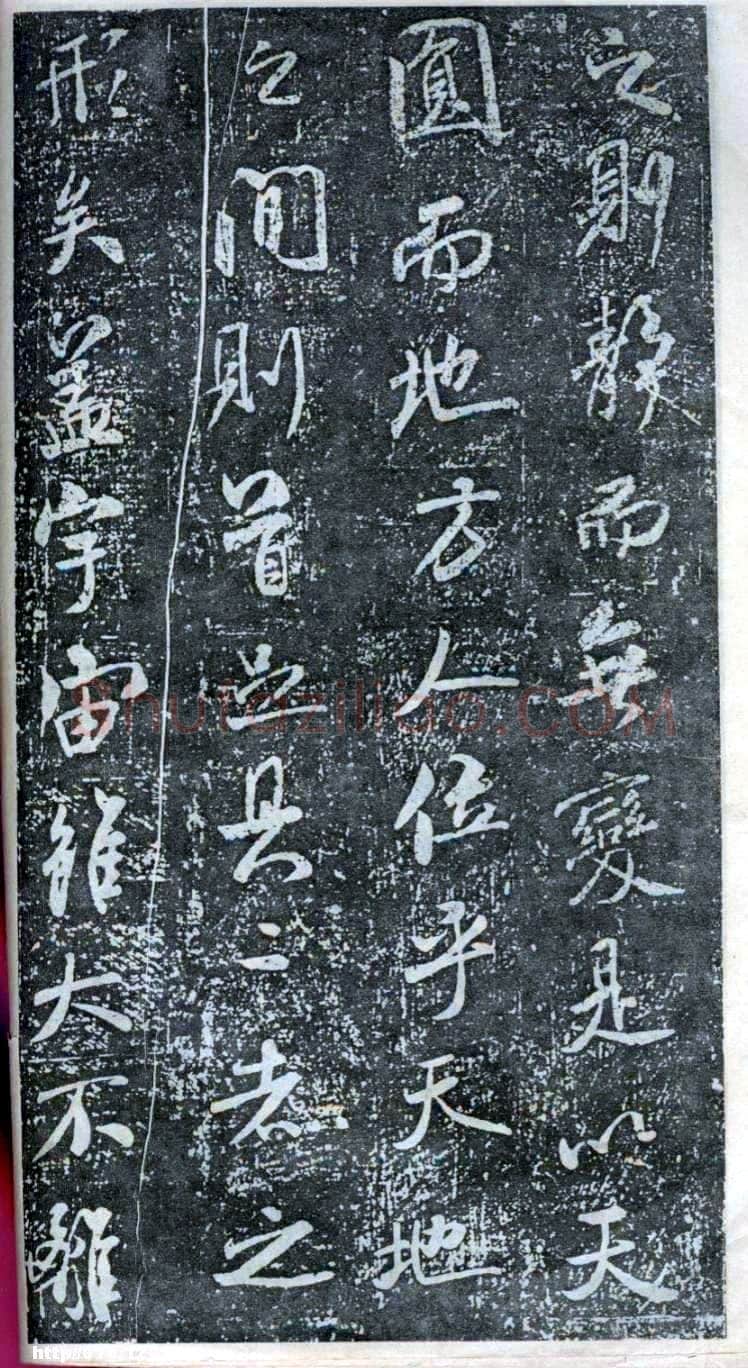 之則靜而無變是以天
圓而地方人位乎天地
之間則首足具二者之
形矣蓋宇宙雖大不離
Shufaziliao.COM